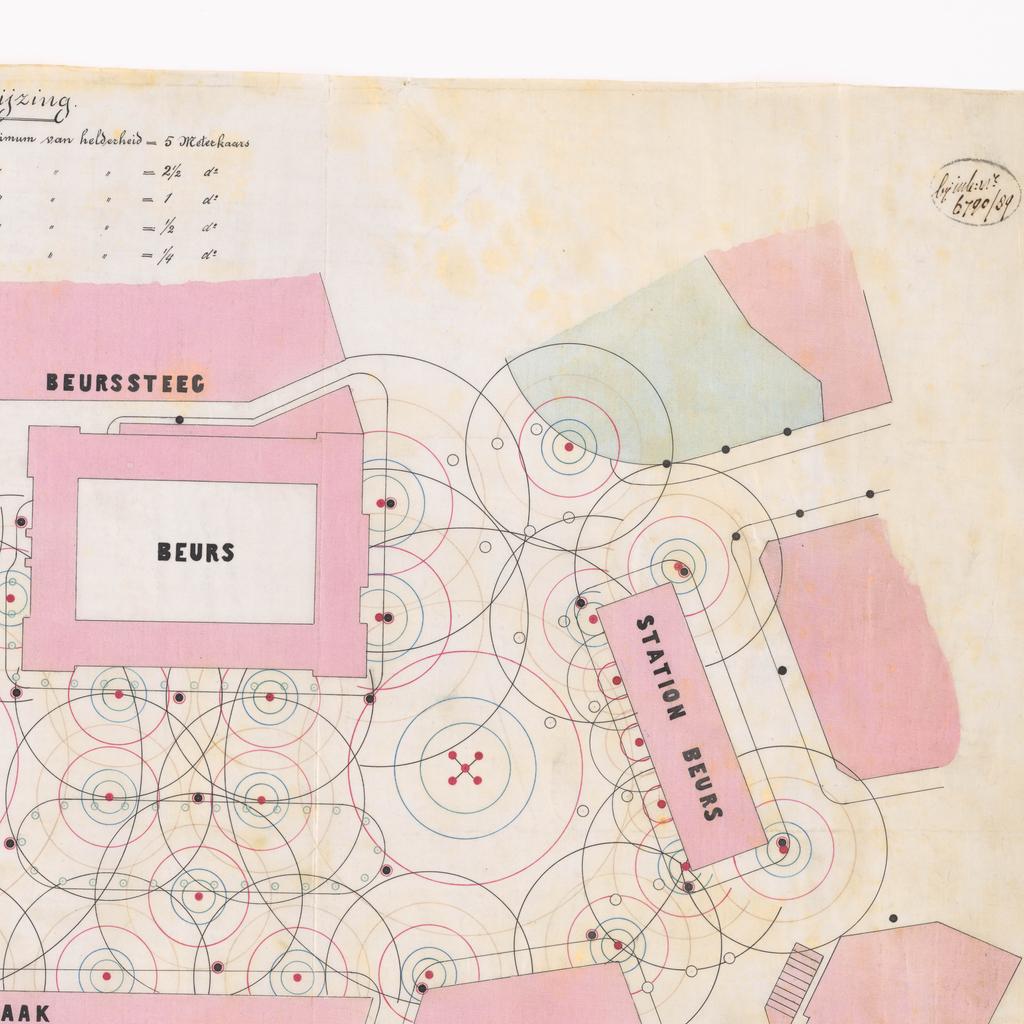 ijzing.
imum van helderheid = 5 Meterkaars
" " " = 2½ do
" " " = 1 do
" " " = ½ do
" " " = ¼ do
6790/89
BEURSSTEEG
BEURS
STATION BEURS
AAK